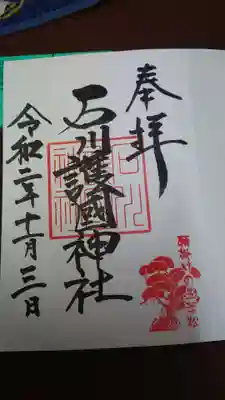 奉拝
石川護國神社
令和二年十一月三日